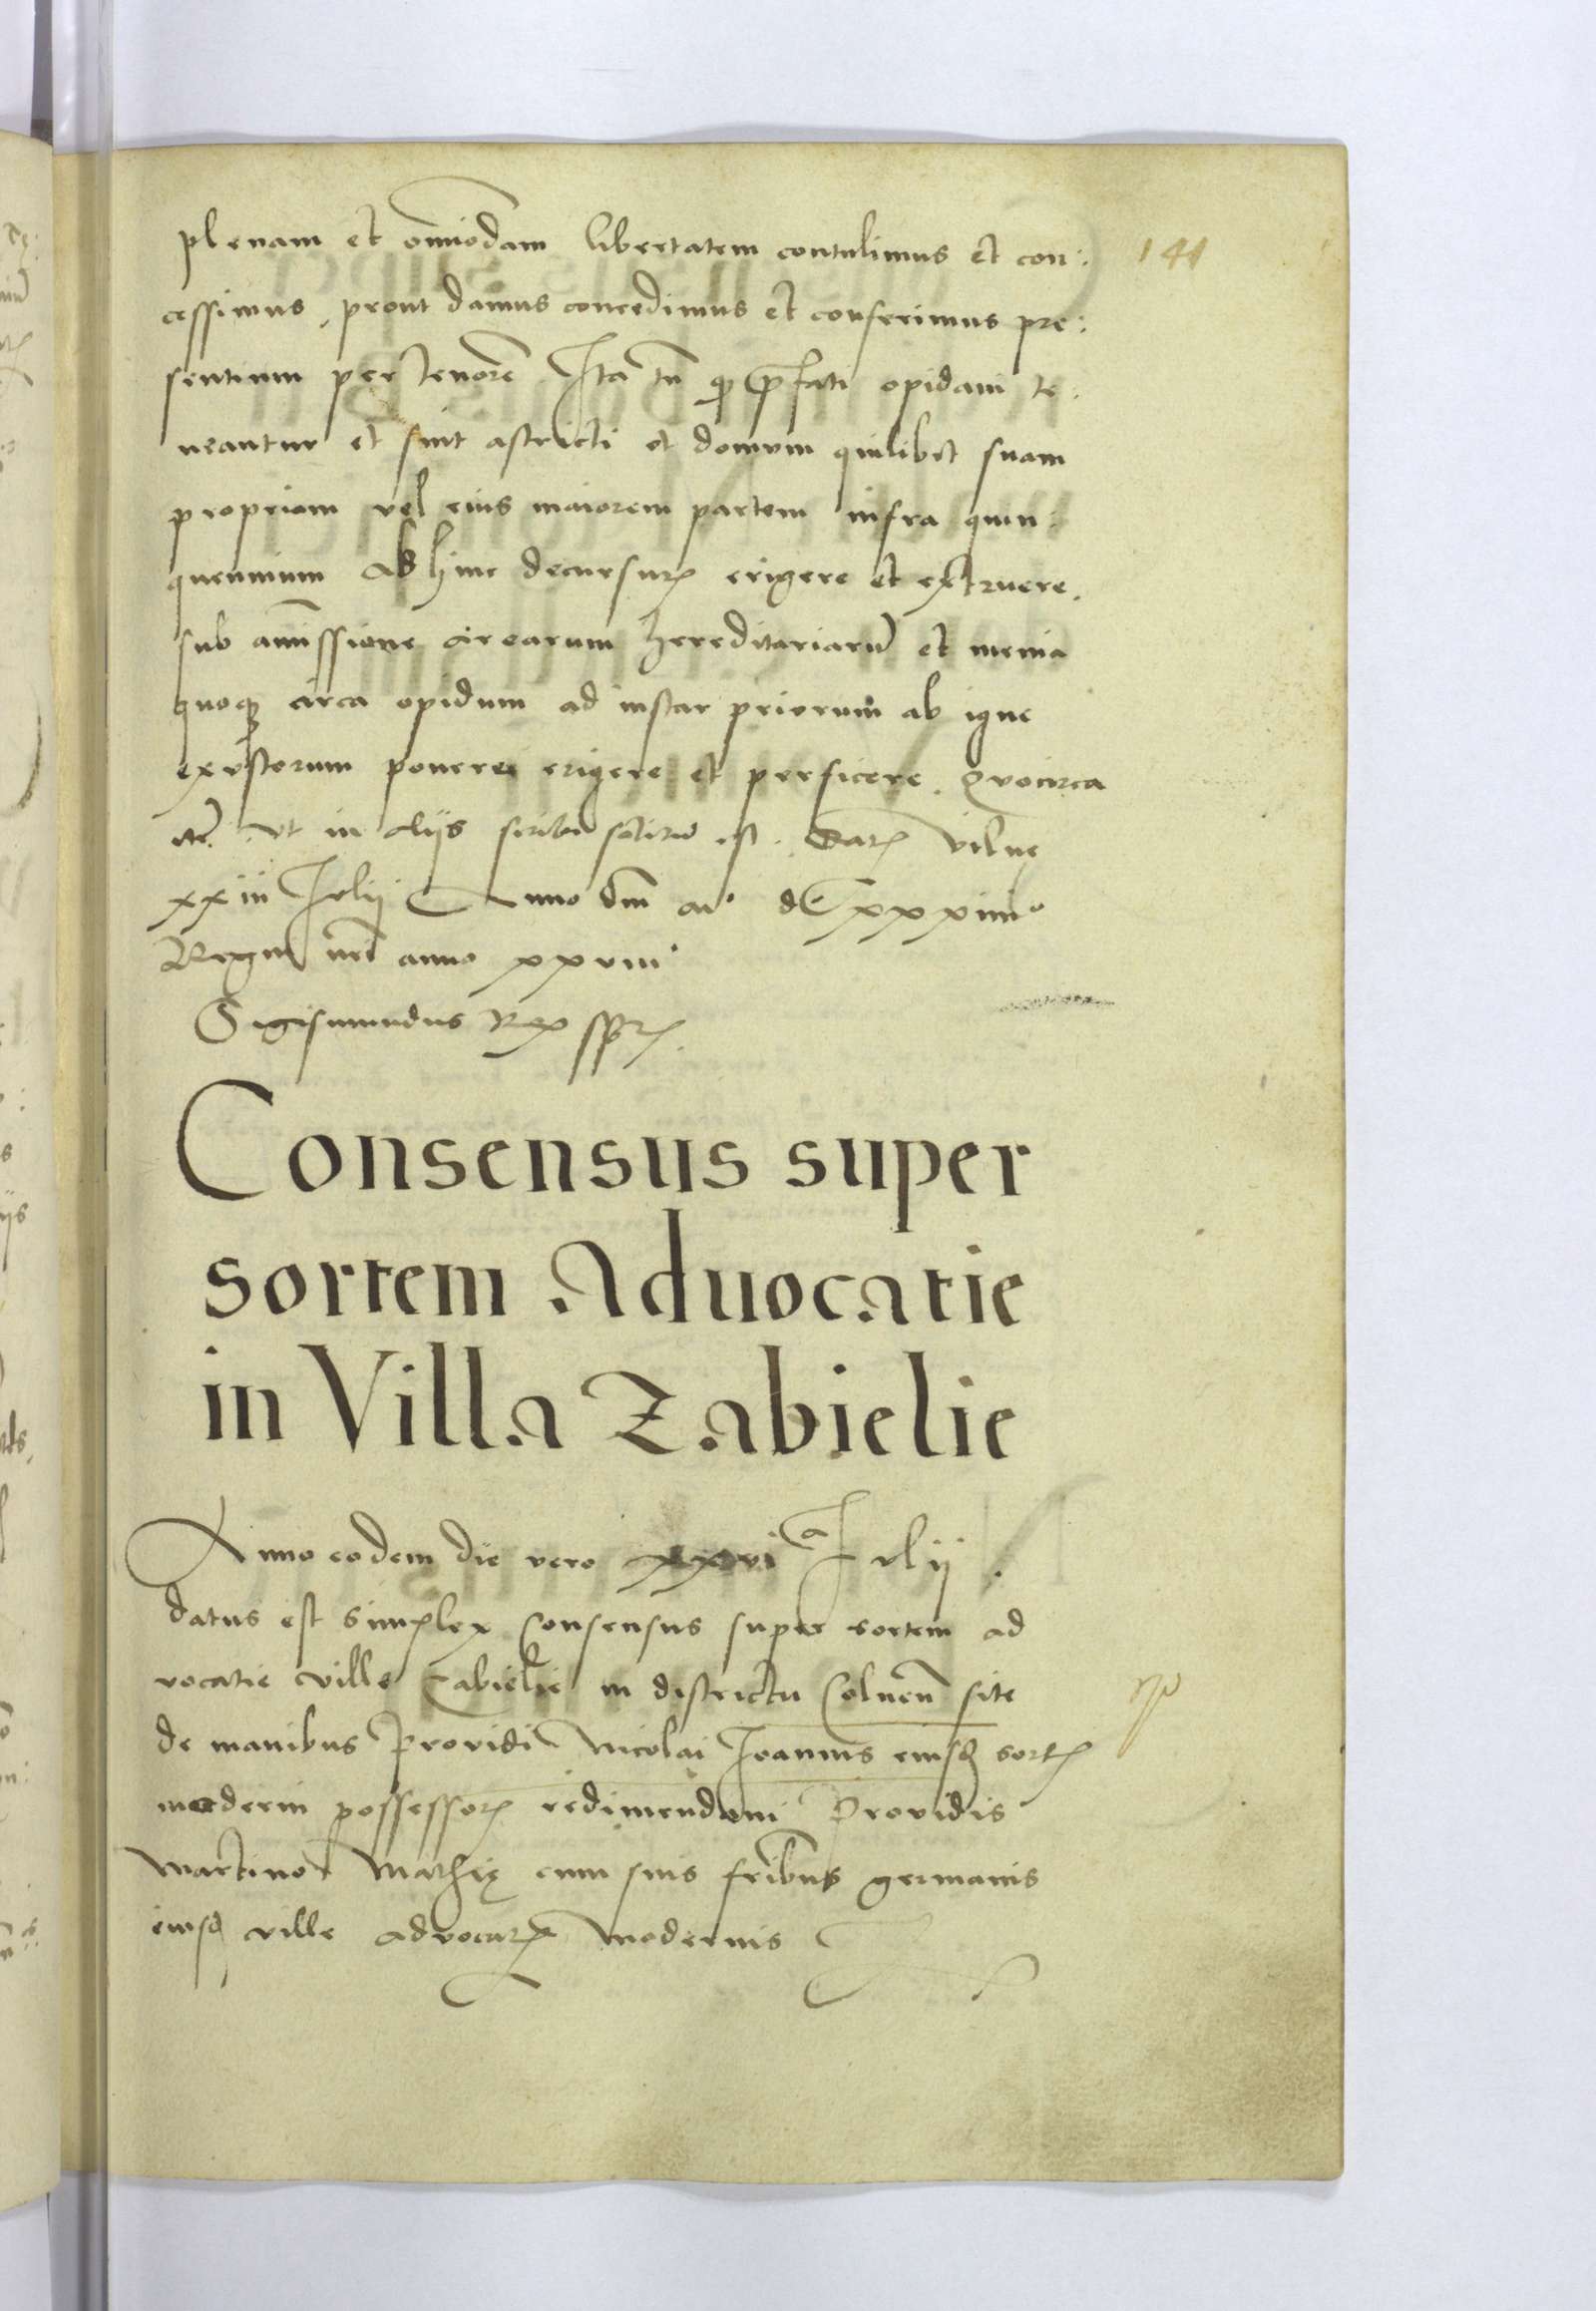 plenam et omnimodam libertatem contulimus et con:
141
cessimus, prout damus concedimus et conferimus pre:
sentium per tenorē. Ita tn̄ qd p̄fati opidani te:
neantur et sint astricti et domum quilibet suam
propriam vel eius maiorem partem infra quin:
quennium abhinc decursuꝝ erigere et extruere.
sub amissione arearum hereditariarū et menia
quoqꝫ circa opidum ad instar priorum ab igne
exustorum ponere erigere et perficere. Quocirca
etc̄. vt in aliis scribi solitū est. Datꝝ Vilne
xxiii Julii Anno dnī mº dCxxxiiiiº
Regni nr̄i anno xxviiiº
Sigismundus Rex ssp̄rꝭ
Consensus super
sortem Aduocatie
in Villa Zabielie
Anno eodem die vero xxvi a Julii.
datus est simplex consensus super sortem ad
vocatie ville Zabielie in districtu Colnen̄ site
de manibus Providi Nicolai Joannis eiusdꝫ sortꝭ
moderni possessorꝭ redimendam Providis
Martino Mathię cum suis fr̄ibus germanis
eiusdꝫ ville advocatꝭ modernis